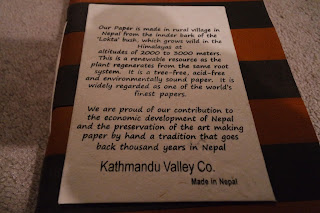 Our Paper is made in rural village in
Nepal from the innder bark of the
'Lokta' bush, which grows wild in the
Himalayas at
altitudes of 2000 to 3000 meters.
This is a renewable resource as the
plant regenerates from the same root
system. It is a tree-free, acid-free
and environmentally sound paper. It is
widely regarded as one of the world's
finest papers.
We are proud of our contribution to
the economic development of Nepal
and the preservation of the art making
paper by hand a tradition that goes
back thousand years in Nepal
Kathmandu Valley Co.
Made In Nepal